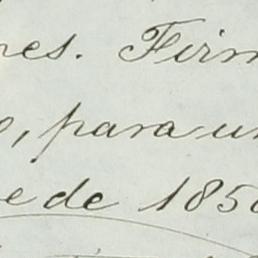 nes. Firm
o, para um
e de 1850